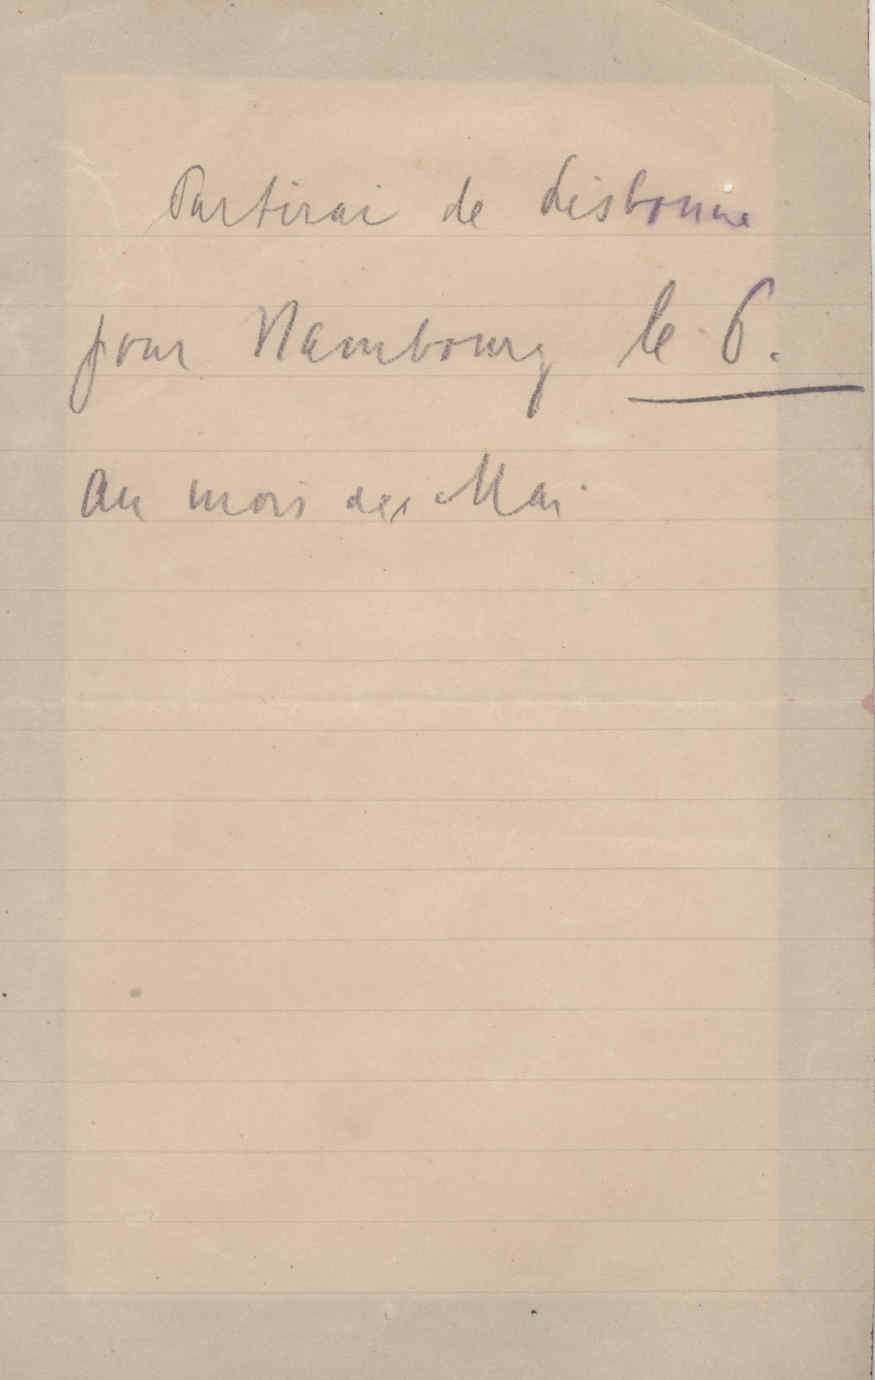 Partirai de Lisbonne
pour Hambourg le 6.
au mois de Mai.